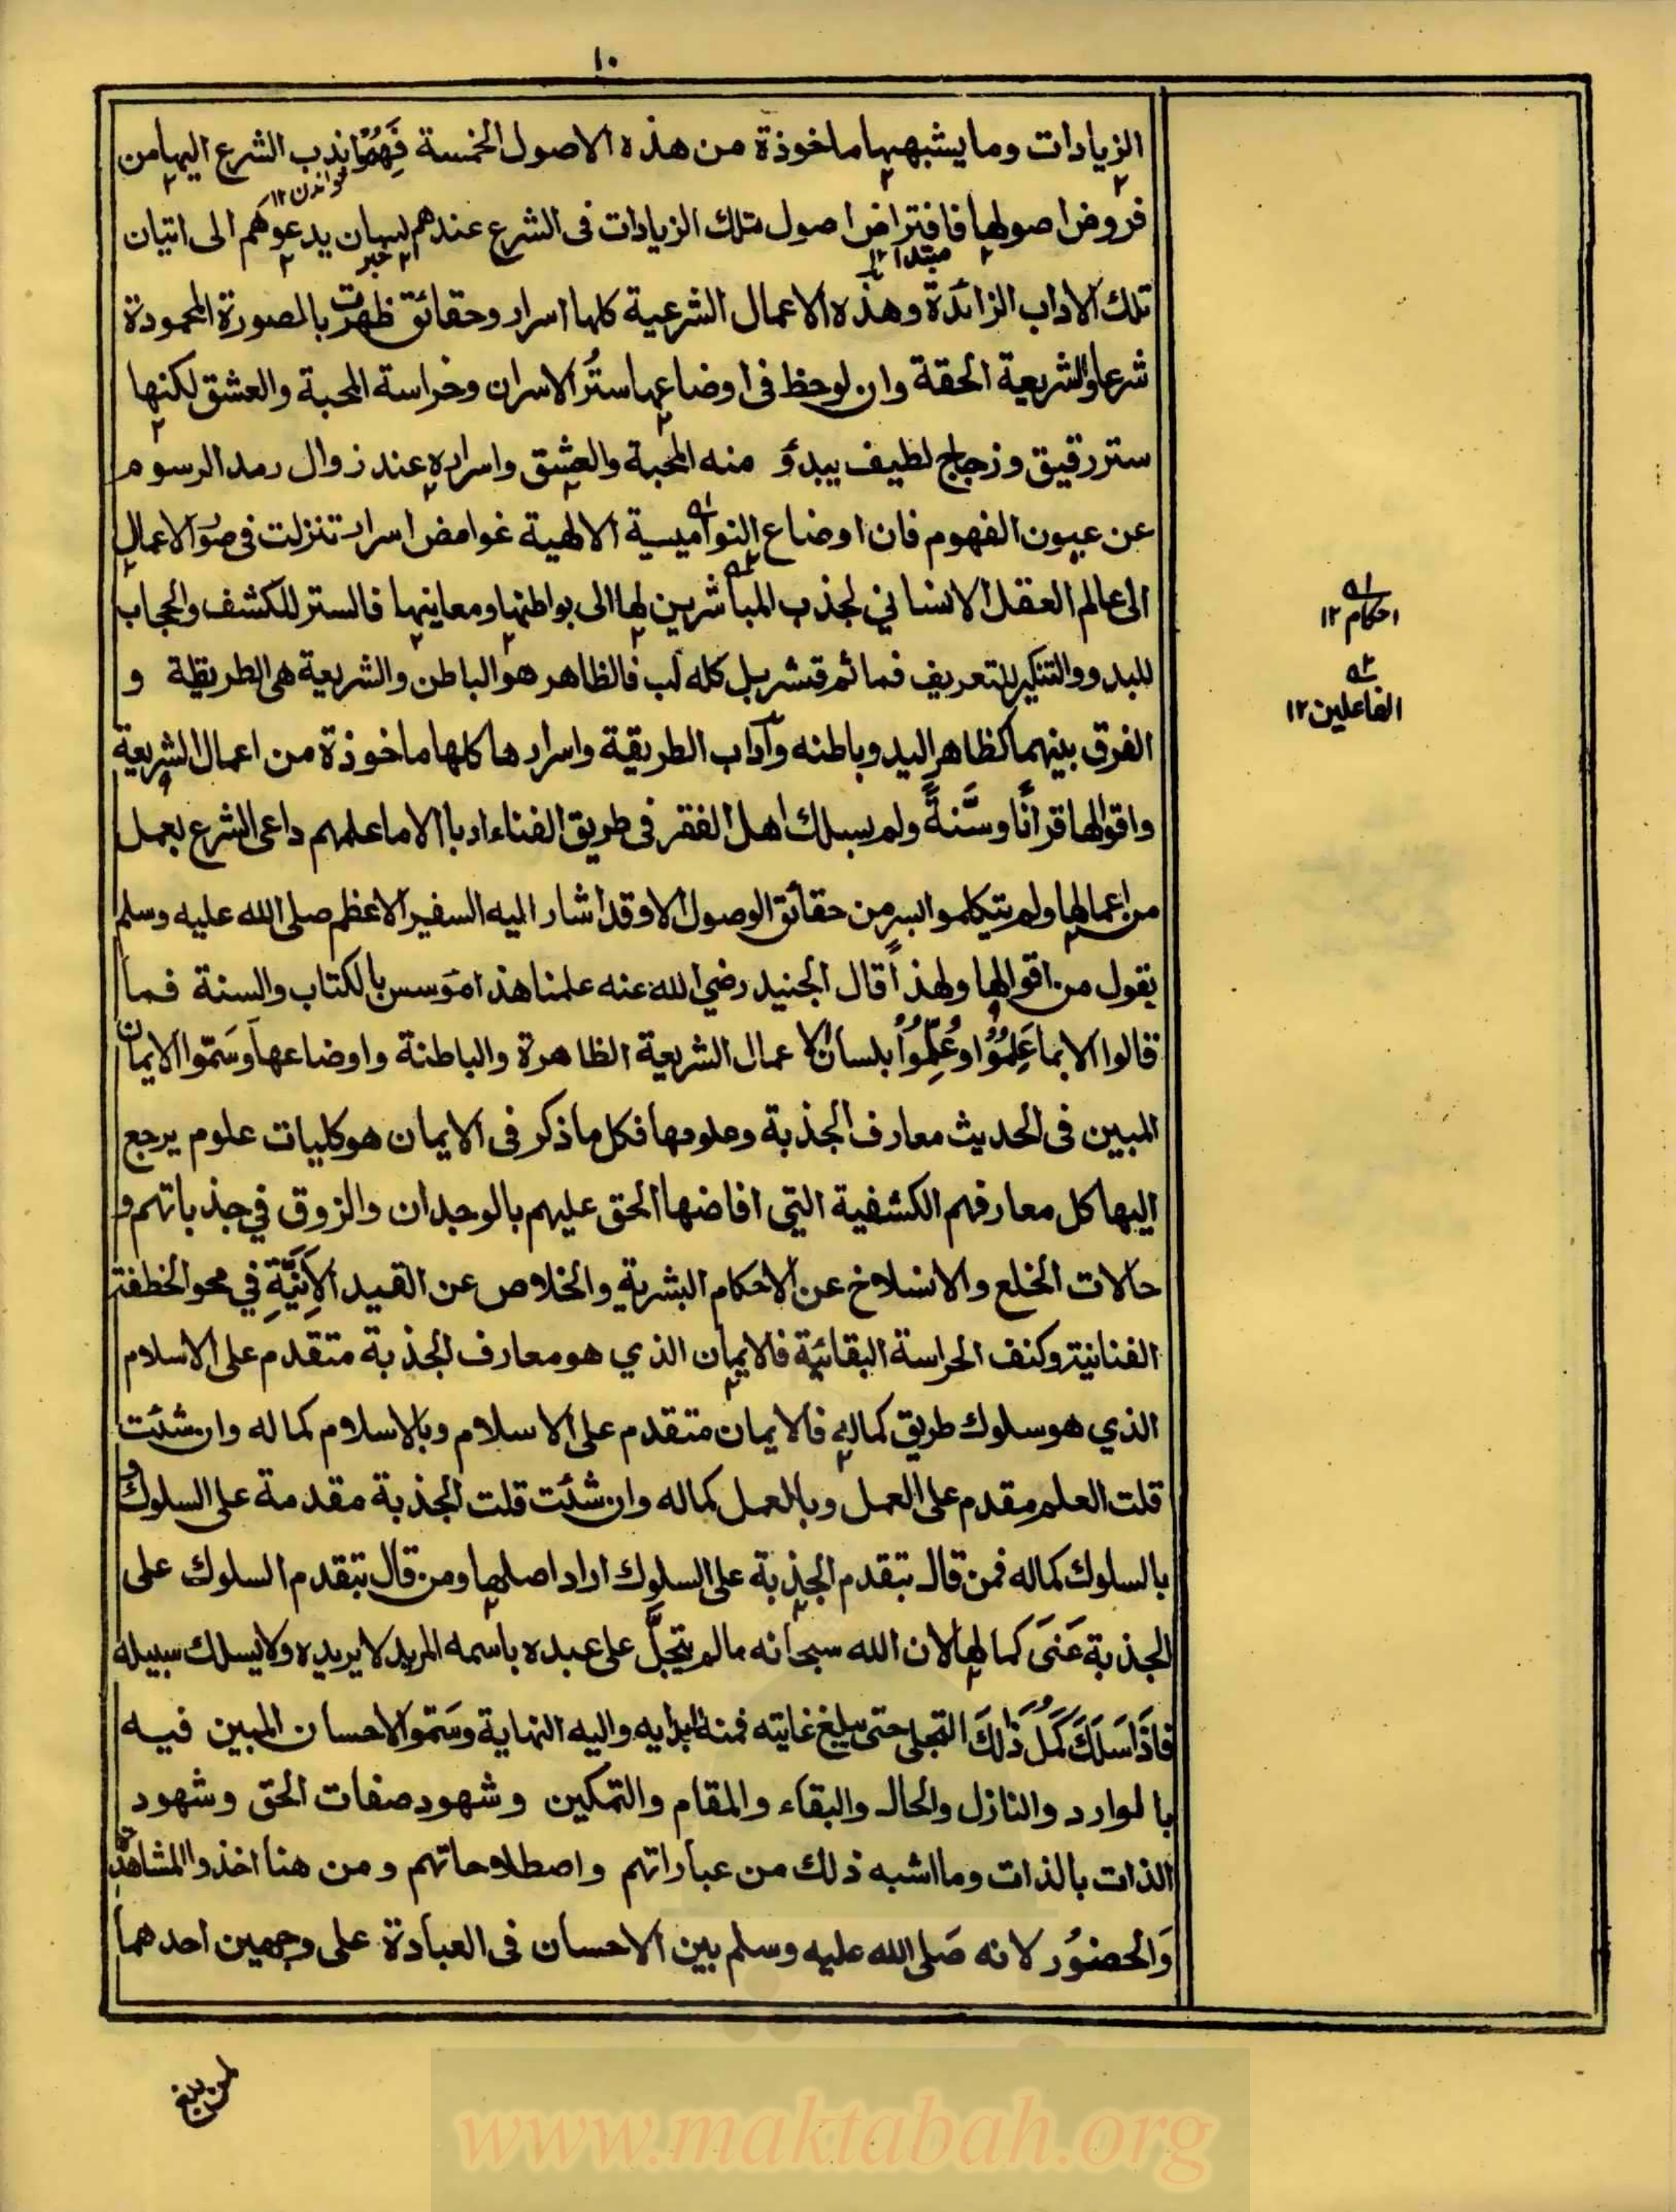 ١٠
الزيادات وما يشبهها ماخوذة من هذه الاصول الخمسة فهموا ندب الشرع اليها من
خواندن ١٢
فروض اصولها فافتراض اصول تلك الزيادات فى الشرع عندهم لسان يدعوهم الى اتيان
مبتدا ١٢
خبر
تلك الاداب الزائدة وهذه الاعمال الشرعية كلها اسرار وحقائق ظهرت بالصورة المحمودة
شرعا والشريعة الحقة وان لوحظ فى اوضاعها ستر الاسرار وحراسة المحبة والعشق لكنها
ستر رقيق وزجاج لطيف يبدؤ منه المحبة والعشق واسراره عند زوال رمد الرسوم
عن عيون الفهوم فان اوضاع النواميسية الالهية غوامض اسرار تنزلت فى صور الاعمال
الى عالم العقل الانساني لجذب المباشرين لها الى بواطنها ومعانيها فالستر للكشف والحجاب
احكام ١٢
للبدو والتنكير للتعريف فما ثم قشر بل كله لب فالظاهر هو الباطن والشريعة هى الطريقة و
الفاعلين ١٢
الفرق بينهما كظاهر اليد وباطنه وآداب الطريقة واسرارها كلها ماخوذة من اعمال الشريعة
واقوالها قرانًا وسنةً ولم يسلك اهل الفقر فى طريق الفناء ادبا الا ما علمهم داعى الشرع بعمل
من اعمالها ولم يتكلموا بسر من حقائق الوصول الا وقد اشار اليه السفير الاعظم صلى الله عليه وسلم
بقول من اقوالها ولهذا قال الجنيد رضي الله عنه علمنا هذا مؤسس بالكتاب والسنة فما
قالوا الا بما عَلِمُوْا وعُلِّمُوْا بلسان الاعمال الشريعة الظاهرة والباطنة واوضاعها وسَمّوا الايمان
المبين فى الحديث معارف الجذبة وعلومها فكل ما ذكر فى الايمان هو كليات علوم يرجع
اليها كل معارفهم الكشفية التي افاضها الحق عليهم بالوجدان والزوق في جذباتهم و
حالات الخلع والانسلاخ عن الاحكام البشرية والخلاص عن القيد الاَنِيَّةِ في محو الخطفة
الفنائية وكنف الحراسة البقائية فالايمان الذي هو معارف الجذبة متقدم على الاسلام
الذي هو سلوك طريق كماله فالايمان متقدم على الاسلام وبالاسلام كماله وان شئت
قلت العلم مقدم على العمل وبالعمل كماله وان شئت قلت الجذبة مقدمة على السلوك و
بالسلوك كماله فمن قال بتقدم الجذبة على السلوك اراد اصلها ومن قال بتقدم السلوك على
الجذبة عَنىَ كمالها لان الله سبحانه ما لم يتجلَّ على عبده باسمه المريد لا يريده ولا يسلك سبيله
فاذا سَلَكَ كَمُلَ ذٰلكَ التجلى حتى يبلغ غايته فمنه البدايه واليه النهاية وسَمّوا الاحسان المبين فيه
بالوارد والنازل والحال والبقاء والمقام والتمكين وشهود صفات الحق وشهود
الذات بالذات وما اشبه ذلك من عباراتهم واصطلاحاتهم ومن هنا اخذوا المشاهدة
وَالحضوُر لانه صَلى الله عليه وسلم بين الاحسان فى العبادة على وجهين احدهما
www.maktabah.org